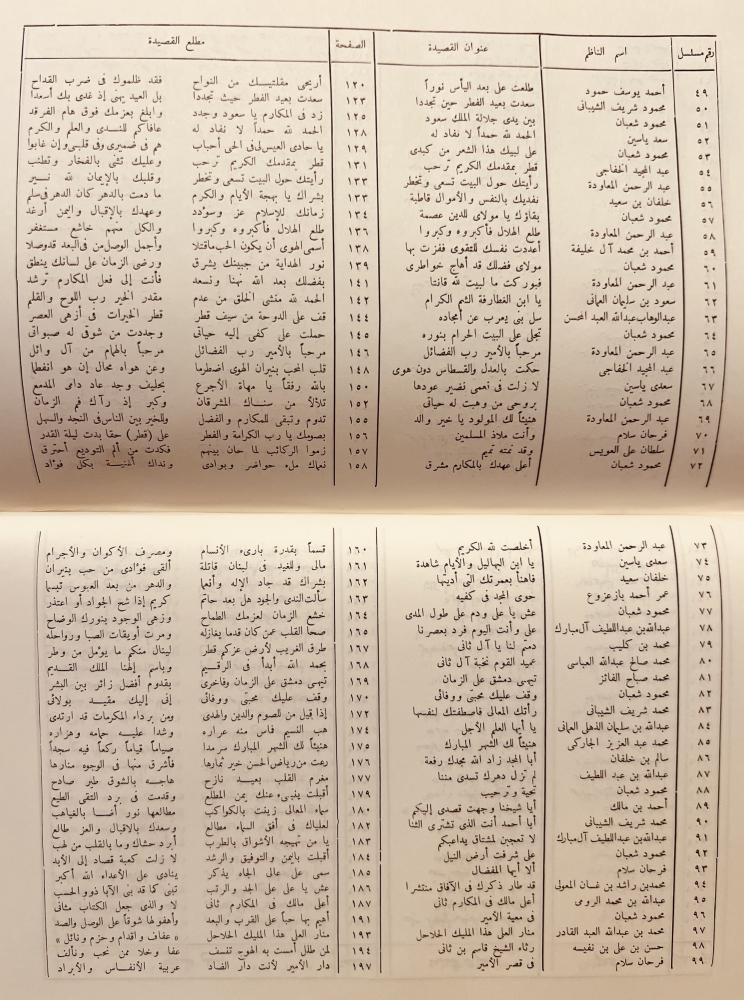 رقم مسلسل | اسم الناظم | عنوان القصيدة | الصفحة | مطلع القصيدة
٤٩ | أحمد يوسف حمود | طلعت على بعد اليأس نوراً | ١٢٠ | أريحى مقلتيك من النواح | فقد ظلموك فى ضرب القداح
٥٠ | محمود شريف الشيبانى | سعدت بعيد الفطر حين تجددا | ١٢٣ | سعدت بعيد الفطر حيث تجددا | بل العيد يهنى إذ غدى بك أسعدا
٥١ | محمود شعبان | بين يدى جلالة الملك سعود | ١٢٥ | زد فى المكارم يا سعود وجدد | وابلغ بعزمك فوق هام الفرقد
٥٢ | سعد ياسين | الحمد لله حمداً لا نفاد له | ١٢٨ | الحمد لله حمداً لا نفاد له | عافاكم للندى والعلم والكرم
٥٣ | محمود شعبان | على لبيك هذا الشعر من كبدى | ١٢٩ | يا حادى العيس لى فى الحى أحباب | هم فى ضميرى وفى قلبى وإن غابوا
٥٤ | عبد المجيد الخفاجى | قطر بمقدمك الكريم ترحب | ١٣١ | قطر بمقدمك الكريم ترحب | وعليك تثنى بالفخار وتطنب
٥٥ | عبد الرحمن المعاودة | رأيتك حول البيت تسعى وتخطر | ١٣٣ | رأيتك حول البيت تسعى وتخطر | وقلبك بالإيمان لله نير
٥٦ | خلفان بن سعيد | نفديك بالنفس والأموال قاطبة | ١٣٣ | بشراك يا بهجة الأيام والكرم | ما دمت بالدهر كان الدهر فى سلم
٥٧ | محمود شعبان | بقاؤك يا مولاى للدين عصمة | ١٣٤ | زمانك للإسلام عز وسؤدد | وعهدك بالإقبال واليمن أرغد
٥٨ | عبد الرحمن المعاودة | طلع الهلال فأكبروه وكبروا | ١٣٦ | طلع الهلال فأكبروه وكبروا | والكل منهم خاشع مستغفر
٥٩ | أحمد بن محمد آل خليفة | أعددت نفسك للتقوى ففزت بها | ١٣٨ | أسمى الهوى أن يكون الحب ماقتلا | وأجمل الوصل من فى البعد قدوصلا
٦٠ | محمود شعبان | مولاى فضلك قد أهاج خواطرى | ١٣٩ | نور الهداية من جبينك يشرق | ورضى الزمان على لسانك ينطق
٦١ | عبد الرحمن المعاودة | فبوركت ما لبيت لله قانتا | ١٤١ | بفضلك بعد الله نهنا ونسعد | فأنت إلى فعل المكارم ترشد
٦٢ | سعود بن سليمان العمانى | يا ابن الغطارفة الشم الكرام | ١٤٢ | الحمد لله منشى الخلق من عدم | مقدر الخير رب اللوح والقلم
٦٣ | عبدالوهاب عبدالله العبد المحسن | سل بنى يعرب عن أمجاده | ١٤٤ | قف على الدوحة من سيف قطر | قطر الخيرات فى أزهى العصر
٦٤ | محمود شعبان | تجلى على البيت الحرام بنوره | ١٤٥ | حملت على كفى إليه حياتى | وجددت من شوقى له صبواتى
٦٥ | عبد الرحمن المعاودة | مرحباً بالأمير رب الفضائل | ١٤٦ | مرحباً بالأمير رب الفضائل | مرحباً بالهمام من آل وائل
٦٦ | عبد المجيد الخفاجى | حكت بالعدل والقسطاس دون هوى | ١٤٨ | قلب المحب بنيران الهوى اضطرما | وعن هواه محال إن هو انفطما
٦٧ | سعدى ياسين | لا زلت فى نعمى نضير عودها | ١٥٠ | بالله رفقاً يا مهاة الأجرع | بحليف وجد عاد دامى المدمع
٦٨ | محمود شعبان | بروحى من وهبت له حياتى | ١٥٢ | تلألأ من سناك المشرقان | وكبر إذ رآك فم الزمان
٦٩ | عبد الرحمن المعاودة | هنيئاً لك المولود يا خير والد | ١٥٥ | تدوم وتبقى للمكارم والفضل | وللخير بين الناس فى النجد والسهل
٧٠ | فرحان سلام | وأنت ملاذ المسلمين | ١٥٦ | بصومك يا رب الكرامة والفطر | على (قطر) حقا بدت ليلة القدر
٧١ | سلطان على العويس | وقد نمته تميم | ١٥٧ | زموا الركائب لما حان بينهم | فكدت من ألم التوديع أحترق
٧٢ | محمود شعبان | أعلى عهدك بالمكارم مشرق | ١٥٨ | نعماك ملء حواضر وبوادى | ونداك أغنية بكل فؤاد
٧٣ | عبد الرحمن المعاودة | أخلصت لله الكريم | ١٦٠ | قسماً بقدرة بارىء الأنسام | ومصرف الأكوان والأجرام
٧٤ | سعدى ياسين | يا ابن البهاليل والأيام شاهدة | ١٦١ | مالى وللغيد فى لبنان قاتلة | ألقى فؤادى من حب بنيران
٧٥ | خلفان سعيد | فاهنأ بعمرتك التى أديتها | ١٦٢ | بشراك قد جاد الإله وأنعما | والدهر من بعد العبوس تبسما
٧٦ | عمر أحمد بازعزوع | حوى المجد فى كفيه | ١٦٣ | سألت الندى والجود هل بعد حاتم | كريم إذا شح الجواد أو اعتذر
٧٧ | محمود شعبان | عش يا على ودم على طول المدى | ١٦٤ | خشع الزمان لعزمك الطماح | وزهى الوجود بنورك الوضاح
٧٨ | عبدالله بن عبداللطيف آل مبارك | على وأنت اليوم فرد بعصرنا | ١٦٥ | صحا القلب عمن كان قدما يغازله | ومرت أويقات الصبا ورواحله
٧٩ | محمد بن كليب | دمتم لنا يا آل ثانى | ١٦٧ | طرق الغريب لأرض عزكم قطر | لينال منكم ما يؤمل من وطر
٨٠ | محمد صالح عبدالله العباسى | عميد القوم نخبة آل ثانى | ١٦٨ | بحمد الله أبدأ فى الرقيم | وباسم إلهنا الملك القديم
٨١ | محمد صباح الفائز | تيهى دمشق على الزمان | ١٦٩ | تيهى دمشق على الزمان وفاخرى | بقدوم أفضل زائر بين البشر
٨٢ | محمود شعبان | وقف عليك محبتى ووفائى | ١٧٠ | وقف عليك محبتى ووفائى | إنى إليك مقيد بولائى
٨٣ | محمد شريف الشيبانى | رأتك المعالى فاصطفتك لنفسها | ١٧٢ | إذا قيل من للصوم والدين والهدى | ومن برداء المكرمات قد ارتدى
٨٤ | عبدالله بن سليمان الذهلى العمانى | يا أيها العلم الأجل | ١٧٤ | هب النسيم فاس منه عراره | وشدا عليه حمامه وهزاره
٨٥ | محمد عبد العزيز الجاركى | هنيئاً لك الشهر المبارك | ١٧٥ | هنيئاً لك الشهر المبارك سرمدا | صياماً قياماً ركعاً فيه سجداً
٨٦ | سالم بن خلفان | أبا المجد زاد الله مجدك رفعة | ١٧٦ | رعت من رياض الحسن خير ثمارها | فأشرق منها فى الوجوه منارها
٨٧ | عبدالله بن عبد اللطيف | لم تزل دهرك تسدى مننا | ١٧٧ | مغرم القلب بعيد نازح | هاجه بالشوق طير صادح
٨٨ | محمود شعبان | تحية وترحيب | ١٧٩ | أقبلت ينبىء عنك يمن المطلع | وقدمت فى برد التقى الطيع
٨٩ | أحمد بن مالك | أبا شيخنا وجهت قصدى إليكم | ١٨٠ | سماء المعالى زينت بالكواكب | مطالعها نور أضا بالغياهب
٩٠ | محمد شريف الشيبانى | أبا أحمد أنت الذى تشترى الثنا | ١٨٢ | لعلياك فى أفق السماء مطالع | وسعدك بالاقبال والعز طالع
٩١ | عبدالله بن عبداللطيف آل مبارك | لا تعجبن لمشتاق يداعبكم | ١٨٣ | يا من تهيجه الأشواق بالطرب | أبرد حشاك وما بالقلب من لهب
٩٢ | محمود شعبان | على شرفت أرض النيل | ١٨٤ | أقبلت باليمن والتوفيق والرشد | لا زلت كعبة قصاد إلى الأبد
٩٣ | فرحان سلام | ألا أيها المفضال | ١٨٥ | سمى على عالى الجاه يذكر | ينادى على الأعداء الله أكبر
٩٤ | محمد بن راشد بن غسان المعولى | قد طار ذكرك فى الآفاق منتشرا | ١٨٦ | عش يا على على الجد والرتب | تبنى كما قد بنى الآبا ذوو الحسب
٩٥ | عبدالله بن محمد الرومى | أعلى مالك فى المكارم ثانى | ١٨٧ | أعلى مالك فى المكارم ثانى | لا والذى جعل الكتاب مثانى
٩٦ | محمود شعبان | فى معية الأمير | ١٩١ | أهيم بها حباً على القرب والبعد | وأهفو لها شوقاً على الوصل والصد
٩٧ | محمد بن عبدالله العبد القادر | منار العلى هذا المليك الحلاحل | ١٩٣ | منار العلى هذا المليك الحلاحل | « عفاف واقدام وحزم ونائل »
٩٨ | حسن بن على بن نفيسه | رثاء الشيخ قاسم بن ثانى | ١٩٤ | لمن طلل أمست به الهوج تنسف | عفا وخلا ممن نحب ونألف
٩٩ | فرحان سلام | فى قصر الأمير | ١٩٧ | دار الأمير لأنت دار الضاد | عربية الأنفاس والأبراد